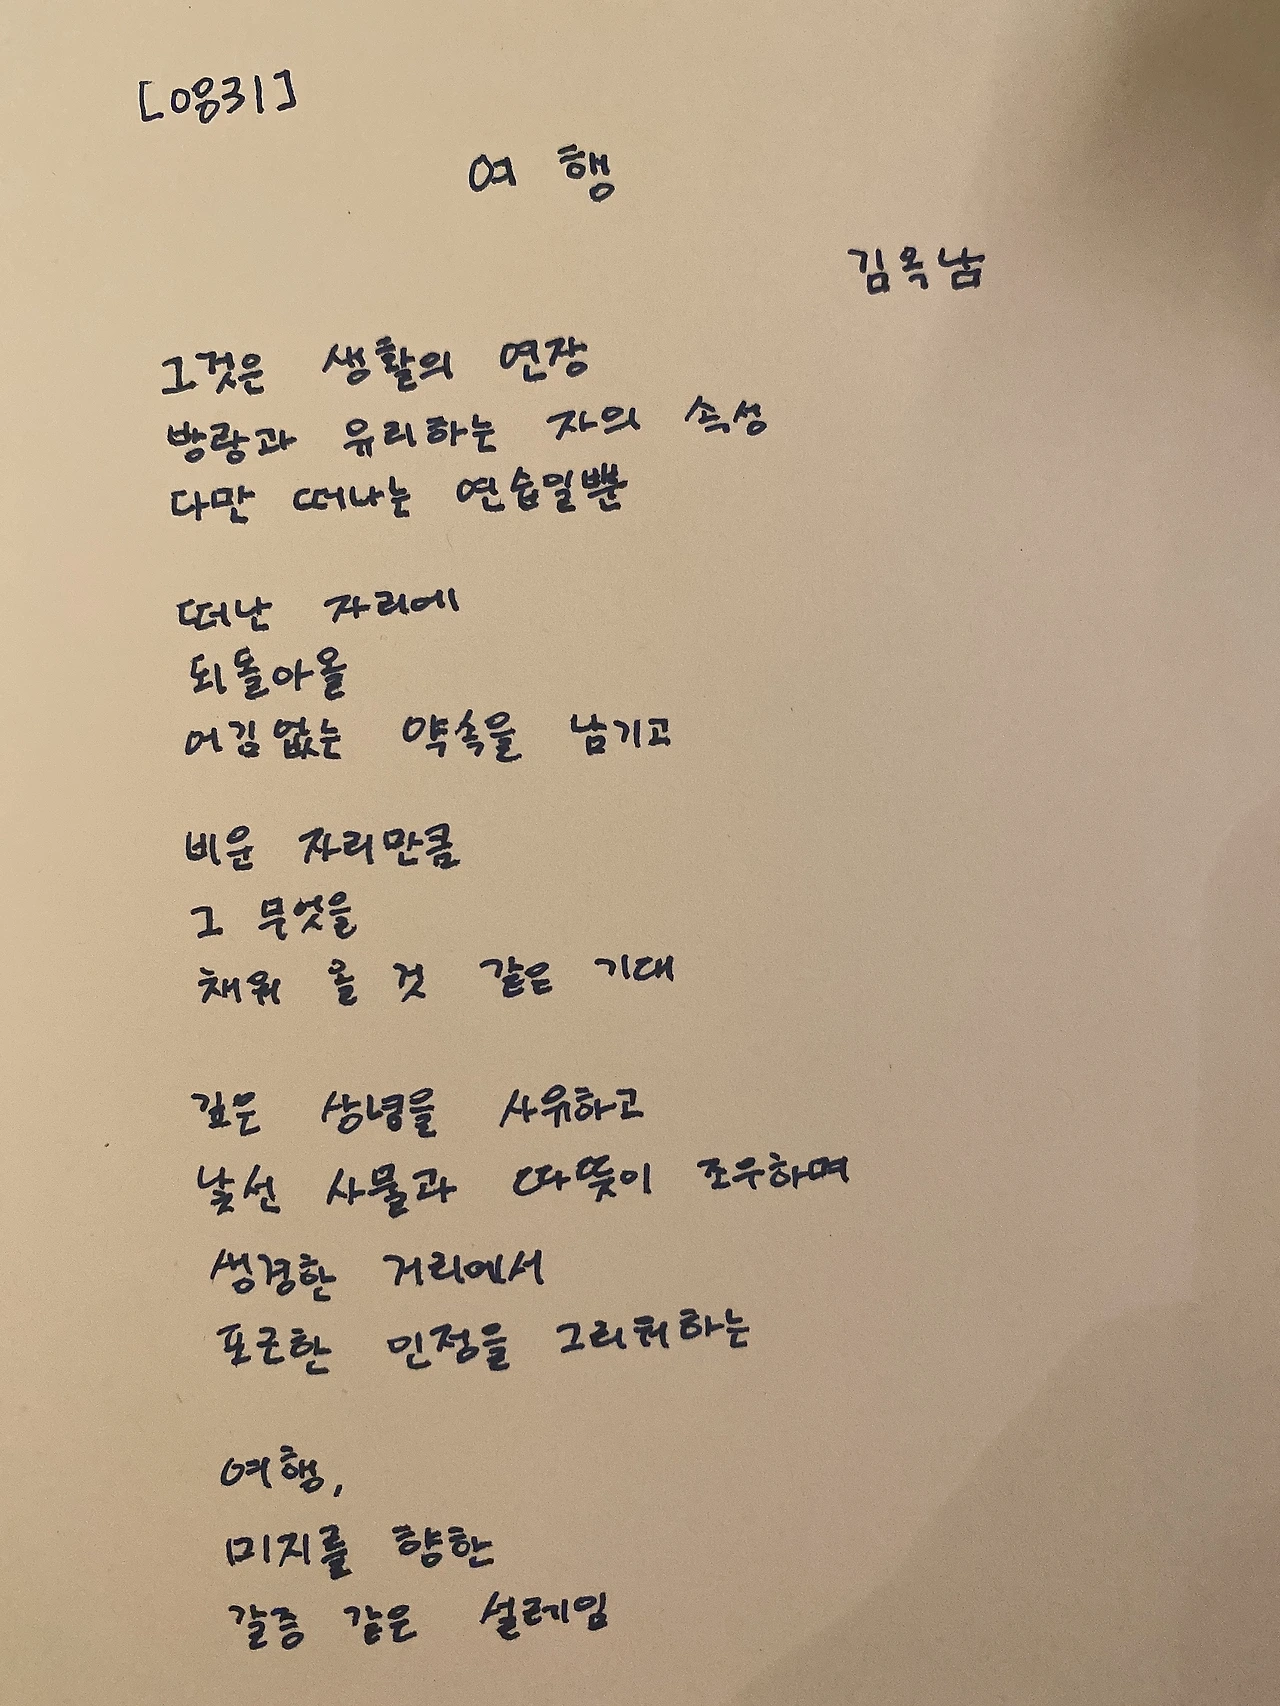 [0831]
여 행
김옥남
그것은 생활의 연장
방랑과 유리하는 자의 속성
다만 떠나는 연습일뿐
떠난 자리에
되돌아올
어김없는 약속을 남기고
비운 자리만큼
그 무엇을
채워 올 것 같은 기대
깊은 상념을 사유하고
낯선 사물과 따뜻이 조우하며
생경한 거리에서
포근한 인정을 그리워하는
여행,
미지를 향한
갈증 같은 설레임